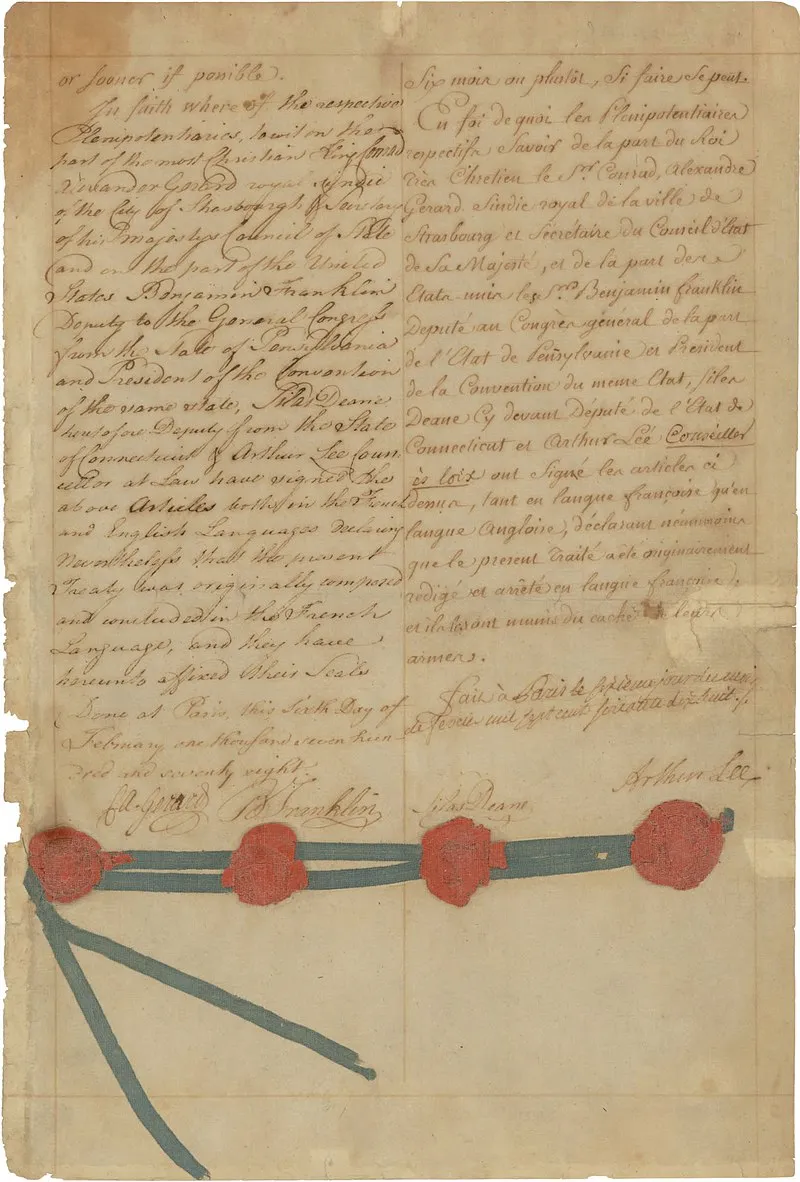 or sooner if possible.
In faith where of the respective
Plenipotentiaries, to wit on the
part of the most Christian King Conrad
Alexander Gerard royal Sindic
of the City of Strasbourgh & Secretary
of his Majestys Council of State
and on the part of the United
States Benjamin Franklin
Deputy to the General Congress
from the State of Pensylvania
and President of the Convention
of the same state, Silas Deane
heretofore Deputy from the State
of Connecticut & Arthur Lee Coun
cellor at Law have signed the
above Articles both in the French
and English Languages declaring
Nevertheless that the present
Treaty was originally composed
and concluded in the French
Language, and they have
hereunto affixed their Seals
Done at Paris, this Sixth Day of
February one thousand seven hun
dred and seventy eight.
Six mois ou plustôt, Si faire se peut.
En foi de quoi les Plenipotentiaires
respectifs Savoir de la part du Roi
très Chretien le Sr. Conrad, Alexandre
Gerard Sindic royal de la ville de
Strasbourg et Sécrétaire du Conseil d'Etat
de Sa Majesté, et de la part des
Etats-unis les Srs. Benjamin franklin
Deputé au Congrès général de la part
de l'Etat de Pensylvanie et President
de la Convention du meme Etat, Silas
Deane Cy devant Député de l'Etat de
Connecticut et Arthur Lée Conseiller
ès loix ont signé les articles ci
dessus, tant en langue françoise qu'en
langue Angloise, déclarant néanmoins
que le present Traité a été originairement
rédigé et arrêté en langue françoise,
et ils les ont munis du cachet de leurs
armes.
fait à Paris le sixieme jour du mois
de fevrier mil sept cent soixante dix huit.
CA. Gerard B Franklin Silas Deane Arthur Lee